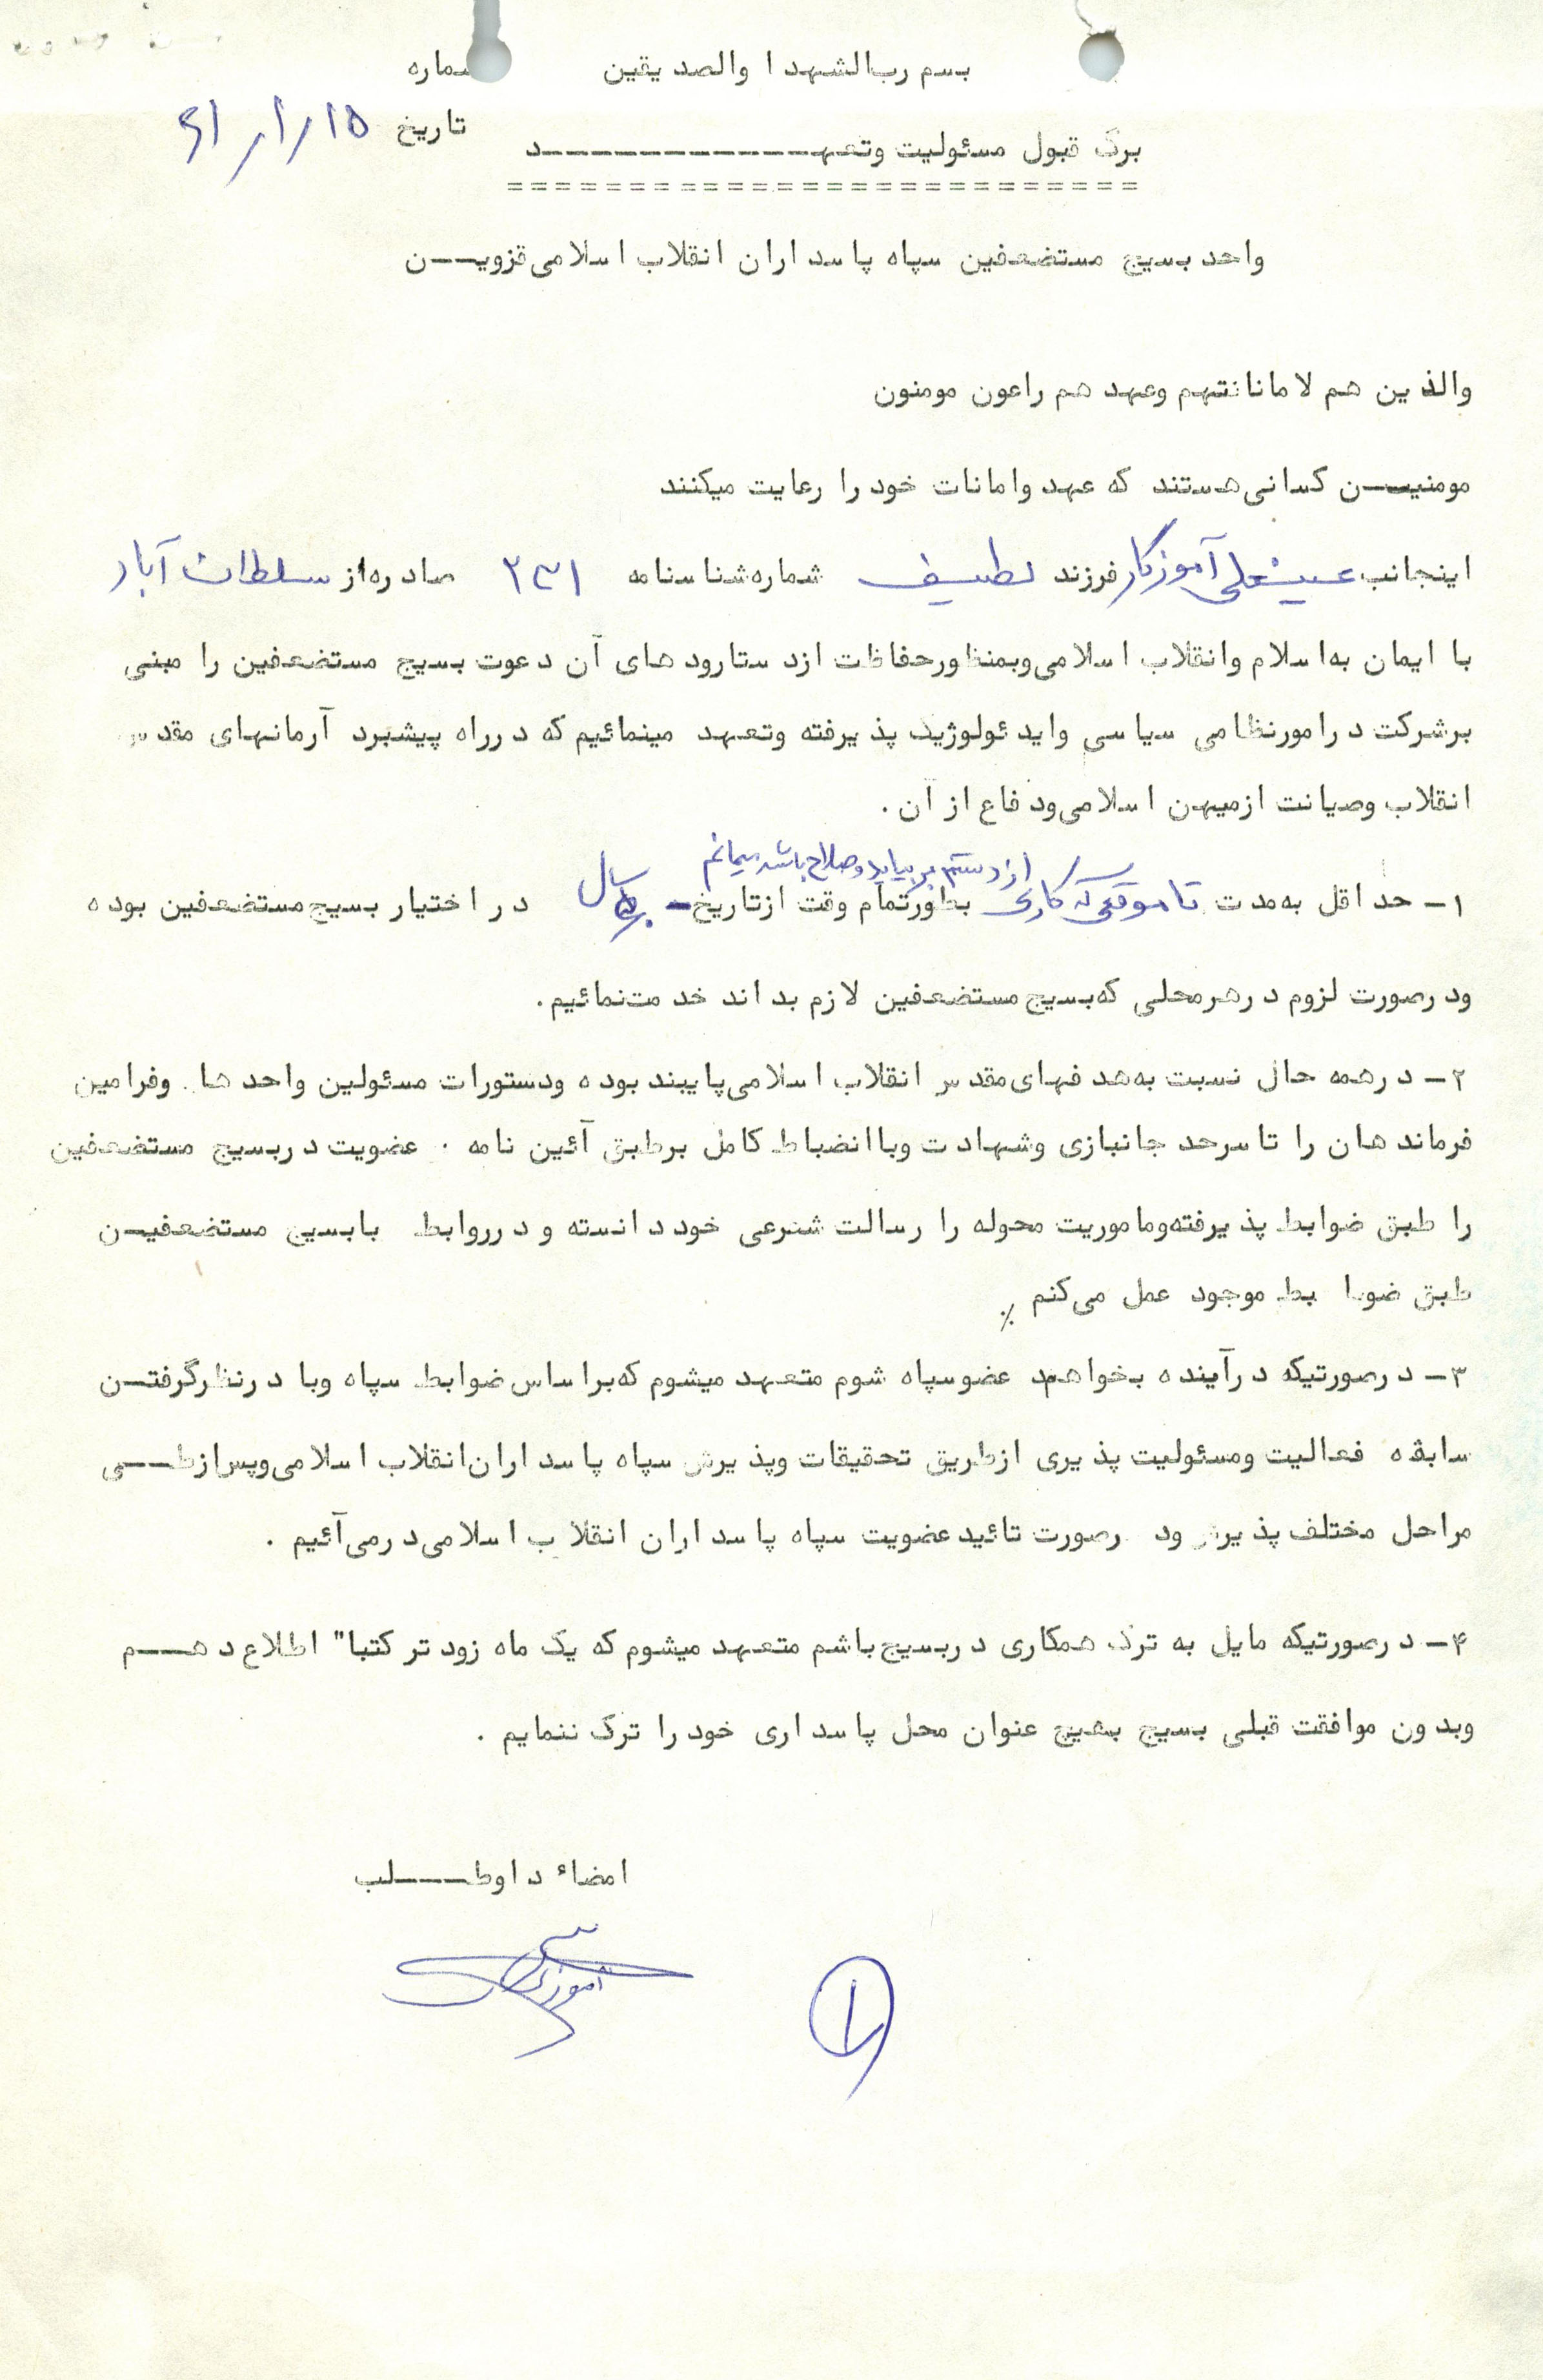 بسم رب‌الشهدا والصدیقین
شماره
تاریخ ۱۵/۱/۶۱
برگ قبول مسئولیت وتعهـــد
واحد بسیج مستضعفین سپاه پاسداران انقلاب اسلامی قزویــن
والذین هم لامانانتهم وعهد هم راعون مومنون
مومنیــن کسانی هستند که عهد وامانات خود را رعایت میکنند
اینجانب عینعلی آموزگار فرزند لطیف شماره شناسنامه ۲۳۱ صادره از سلطان آباد
با ایمان به اسلام وانقلاب اسلامی وبمنظورحفاظت ازدستارودهای آن دعوت بسیج مستضعفین را مبنی
برشرکت درامورنظامی سیاسی وایدئولوژیک پذیرفته وتعهد مینمائیم که درراه پیشبرد آرمانهای مقدس
انقلاب وصیانت ازمیهن اسلامی ودفاع از آن .
از دستم بر بیاید وصلاح باشد میمانم
۱- حداقل به مدت تا موقعی که کاری بطورتمام وقت ازتاریخ - سال در اختیار بسیج مستضعفین بوده
ودرصورت لزوم درهرمحلی که بسیج مستضعفین لازم بداند خدمت نمائیم.
۲- درهمه حال نسبت به هدفهای مقدس انقلاب اسلامی پایبند بوده ودستورات مسئولین واحدها . وفرامین
فرماندهان را تاسرحد جانبازی وشهادت وباانضباط کامل برطبق آئین نامه . عضویت دربسیج مستضعفین
را طبق ضوابط پذیرفته وماموریت محوله را رسالت شرعی خود دانسته و درروابط بابسیج مستضعفیــن
طبق ضوابط موجود عمل می کنم ./
۳- درصورتیکه درآینده بخواهم عضوسپاه شوم متعهد میشوم که براساس ضوابط سپاه وبا درنظرگرفتــن
سابقه فعالیت ومسئولیت پذیری ازطریق تحقیقات وپذیرش سپاه پاسداران انقلاب اسلامی وپس ازطــی
مراحل مختلف پذیرش ودرصورت تائید عضویت سپاه پاسداران انقلاب اسلامی درمی آئیم .
۴- درصورتیکه مایل به ترک همکاری دربسیج باشم متعهد میشوم که یک ماه زود تر کتبا" اطلاع دهــم
وبدون موافقت قبلی بسیج بهیچ عنوان محل پاسداری خود را ترک ننمایم .
امضاء داوطــلب
آموزگار
۱